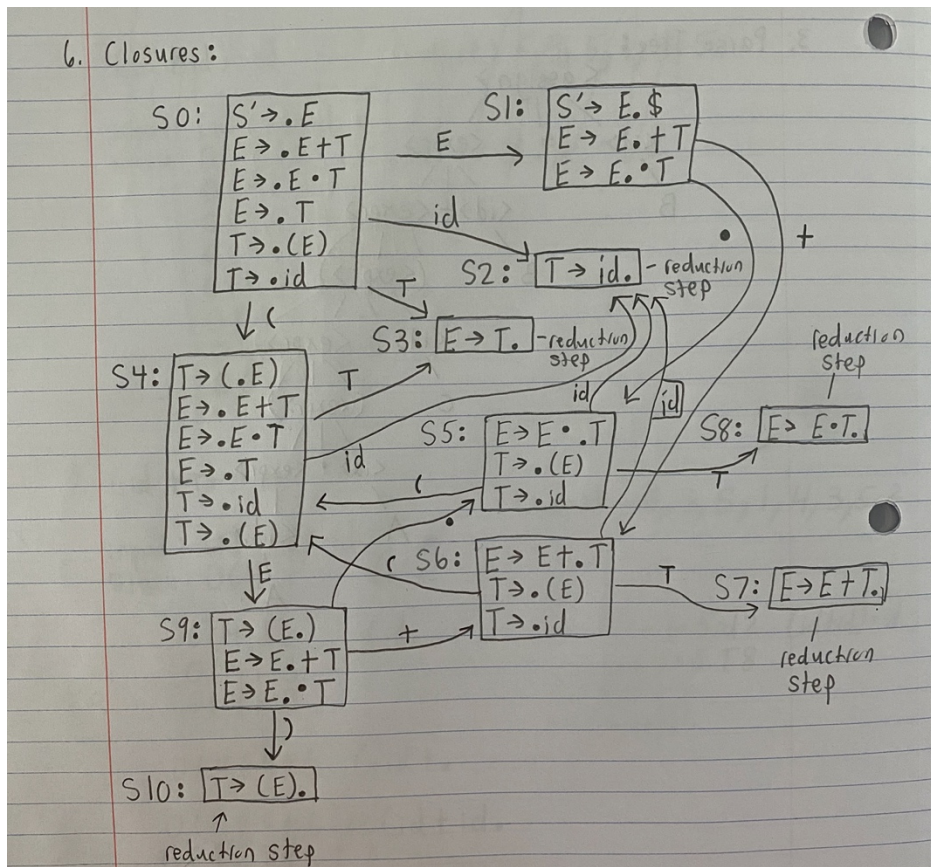 6. Closures:
S0:
S'→.E
E→.E+T
E→.E•T
E→.T
T→.(E)
T→.id
E
S1:
S'→E.$
E→E.+T
E→E.•T
id
•
+
S2:
T→id.
-reduction
step
T
(
S3:
E→T.
-reduction
step
reduction
step
S4:
T→(.E)
E→.E+T
E→.E•T
E→.T
T→.id
T→.(E)
T
id
id
id
S5:
E→E•.T
T→.(E)
T→.id
(
T
S8:
E→E•T.
•
E
(
S6:
E→E+.T
T→.(E)
T→.id
T
S7:
E→E+T.
reduction
step
S9:
T→(E.)
E→E.+T
E→E.•T
+
)
S10:
T→(E).
reduction step